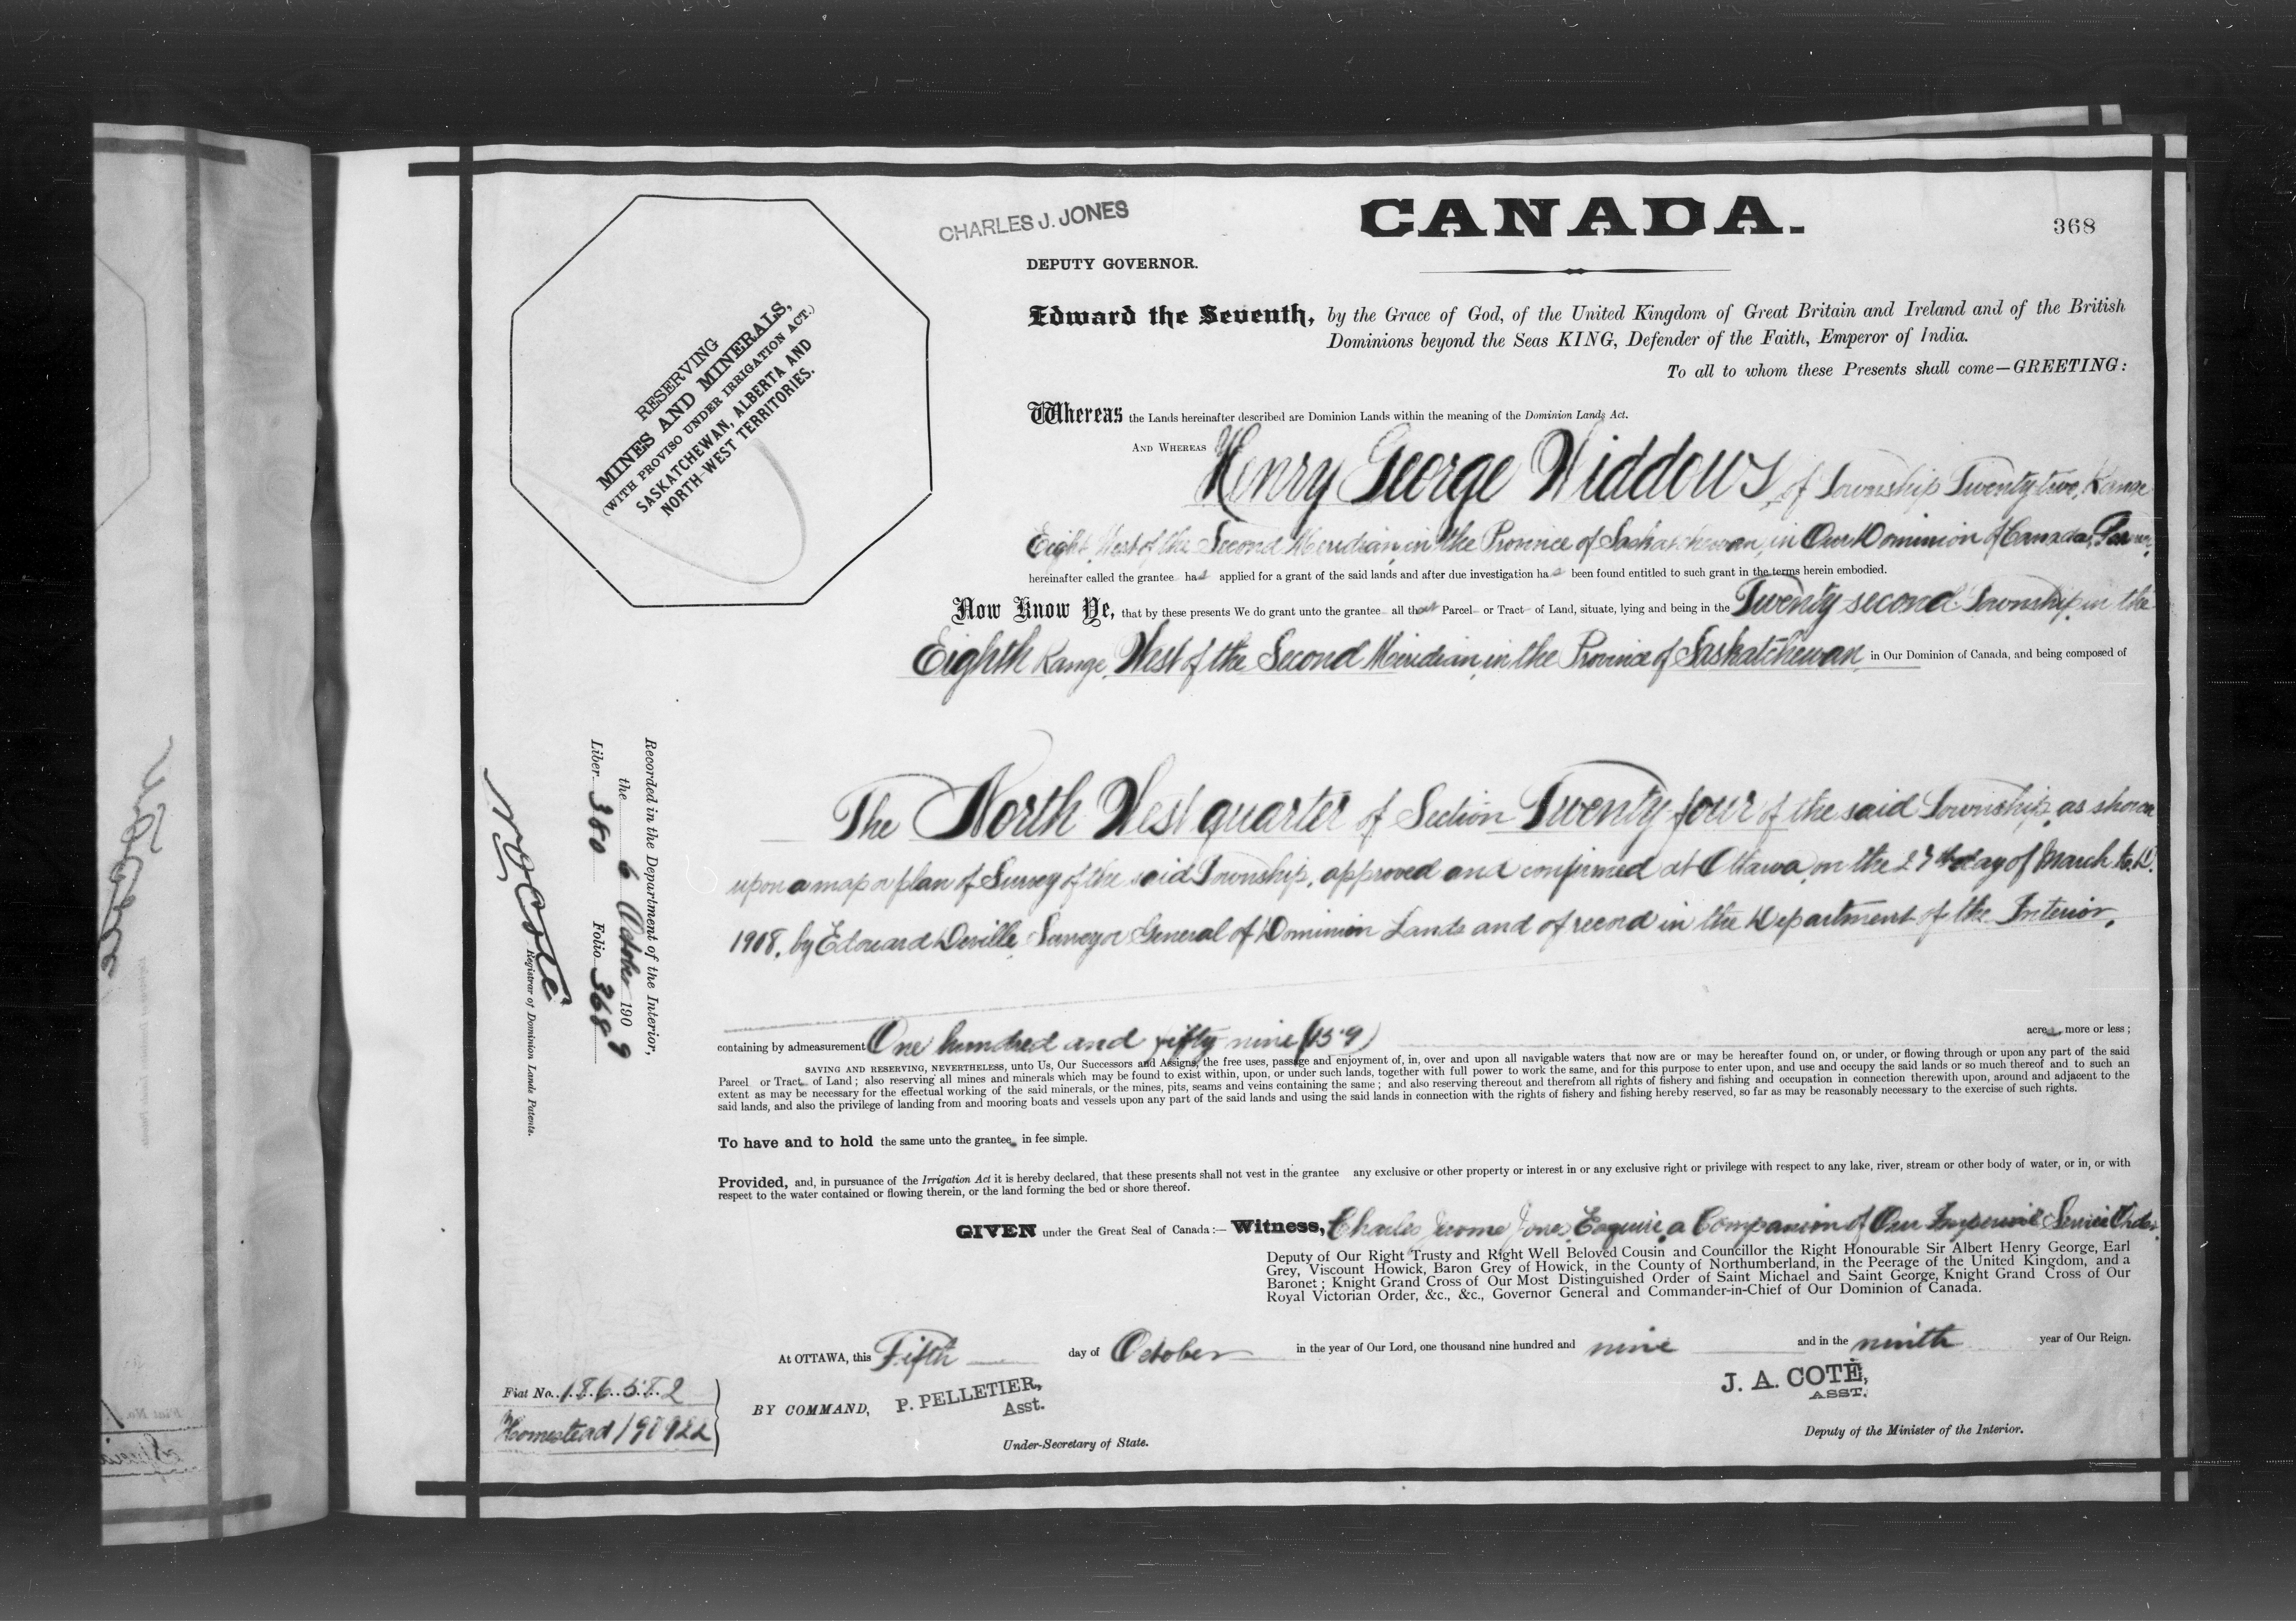 CHARLES J. JONES
CANADA.
368
DEPUTY GOVERNOR.
Edward the Seventh, by the Grace of God, of the United Kingdom of Great Britain and Ireland and of the British
Dominions beyond the Seas KING, Defender of the Faith, Emperor of India.
To all to whom these Presents shall come—GREETING:
RESERVING
MINES AND MINERALS,
(WITH PROVISO UNDER IRRIGATION ACT.)
SASKATCHEWAN, ALBERTA AND
NORTH-WEST TERRITORIES.
Whereas the Lands hereinafter described are Dominion Lands within the meaning of the Dominion Lands Act.
AND WHEREAS Henry George Widdows, of Township Twenty-two, Range
Eight, West of the Second Meridian, in the Province of Saskatchewan, in Our Dominion of Canada, Farmer,
hereinafter called the grantee has applied for a grant of the said lands and after due investigation has been found entitled to such grant in the terms herein embodied.
Now Know Ye, that by these presents We do grant unto the grantee all that Parcel or Tract of Land, situate, lying and being in the Twenty second Township, in the
Eighth Range, West of the Second Meridian, in the Province of Saskatchewan, in Our Dominion of Canada, and being composed of
The North West quarter of Section Twenty four of the said Township, as shown
upon a map or plan of Survey of the said Township, approved and confirmed at Ottawa, on the day of March A.D.
1908, by Edouard Deville, Surveyor General of Dominion Lands and of record in the Department of the Interior,
containing by admeasurement One hundred and fifty nine (159) acres, more or less;
SAVING AND RESERVING, NEVERTHELESS, unto Us, Our Successors and Assigns, the free uses, passage and enjoyment of, in, over and upon all navigable waters that now are or may be hereafter found on, or under, or flowing through or upon any part of the said
Parcel or Tract of Land; also reserving all mines and minerals which may be found to exist within, upon, or under such lands, together with full power to work the same, and for this purpose to enter upon, and use and occupy the said lands or so much thereof and to such an
extent as may be necessary for the effectual working of the said minerals, or the mines, pits, seams and veins containing the same; and also reserving thereout and therefrom all rights of fishery and fishing and occupation in connection therewith upon, around and adjacent to the
said lands, and also the privilege of landing from and mooring boats and vessels upon any part of the said lands and using the said lands in connection with the rights of fishery and fishing hereby reserved, so far as may be reasonably necessary to the exercise of such rights.
To have and to hold the same unto the grantee in fee simple.
Provided, and, in pursuance of the Irrigation Act it is hereby declared, that these presents shall not vest in the grantee any exclusive or other property or interest in or any exclusive right or privilege with respect to any lake, river, stream or other body of water, or in, or with
respect to the water contained or flowing therein, or the land forming the bed or shore thereof.
GIVEN under the Great Seal of Canada:— Witness, Charles Jerome Jones, Esquire, a Companion of Our Imperial Service Order,
Deputy of Our Right Trusty and Right Well Beloved Cousin and Councillor the Right Honourable Sir Albert Henry George, Earl
Grey, Viscount Howick, Baron Grey of Howick, in the County of Northumberland, in the Peerage of the United Kingdom, and a
Baronet; Knight Grand Cross of Our Most Distinguished Order of Saint Michael and Saint George, Knight Grand Cross of Our
Royal Victorian Order, &c., &c., Governor General and Commander-in-Chief of Our Dominion of Canada.
At OTTAWA, this Fifth day of October in the year of Our Lord, one thousand nine hundred and nine and in the ninth year of Our Reign.
BY COMMAND, P. PELLETIER,
Asst.
Under-Secretary of State.
J. A. COTÉ,
ASST.
Deputy of the Minister of the Interior.
Fiat No. 186582
Homestead
Recorded in the Department of the Interior,
the 6 October 1909
Liber 380 Folio 368
N O Coté
Registrar of Dominion Lands Patents.